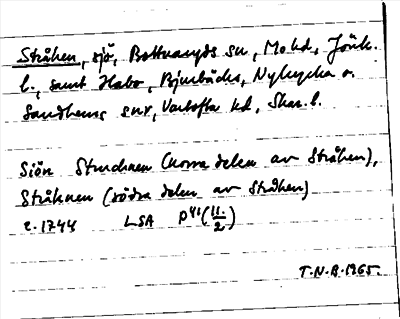 Stråken, sjö, Bottnaryds sn, Mo hd, Jönk.
l., samt Habo, Bjurbäcks, Nykyrka o.
Sandhems snr, Vartofta hd, Skar. l.
Siön Struchnen (norra delen av Stråken),
Stråknen (södra delen av Stråken)
c. 1744 LSA P41 (11/2)
T.N.B. 1965.